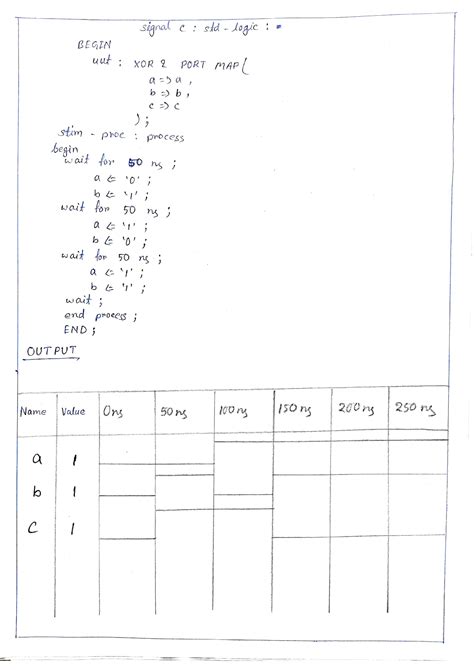 signal c : std - logic : =
BEGIN
uut : XOR 2 PORT MAP (
a => a ,
b => b ,
c => c
) ;
stim - proc : process
begin
wait for 50 ns ;
a <= '0' ;
b <= '1' ;
wait for 50 ns ;
a <= '1' ;
b <= '0' ;
wait for 50 ns ;
a <= '1' ;
b <= '1' ;
wait ;
end process ;
END ;
OUTPUT
Name Value 0ns 50 ns 100 ns 150 ns 200 ns 250 ns
a 1
b 1
C 1